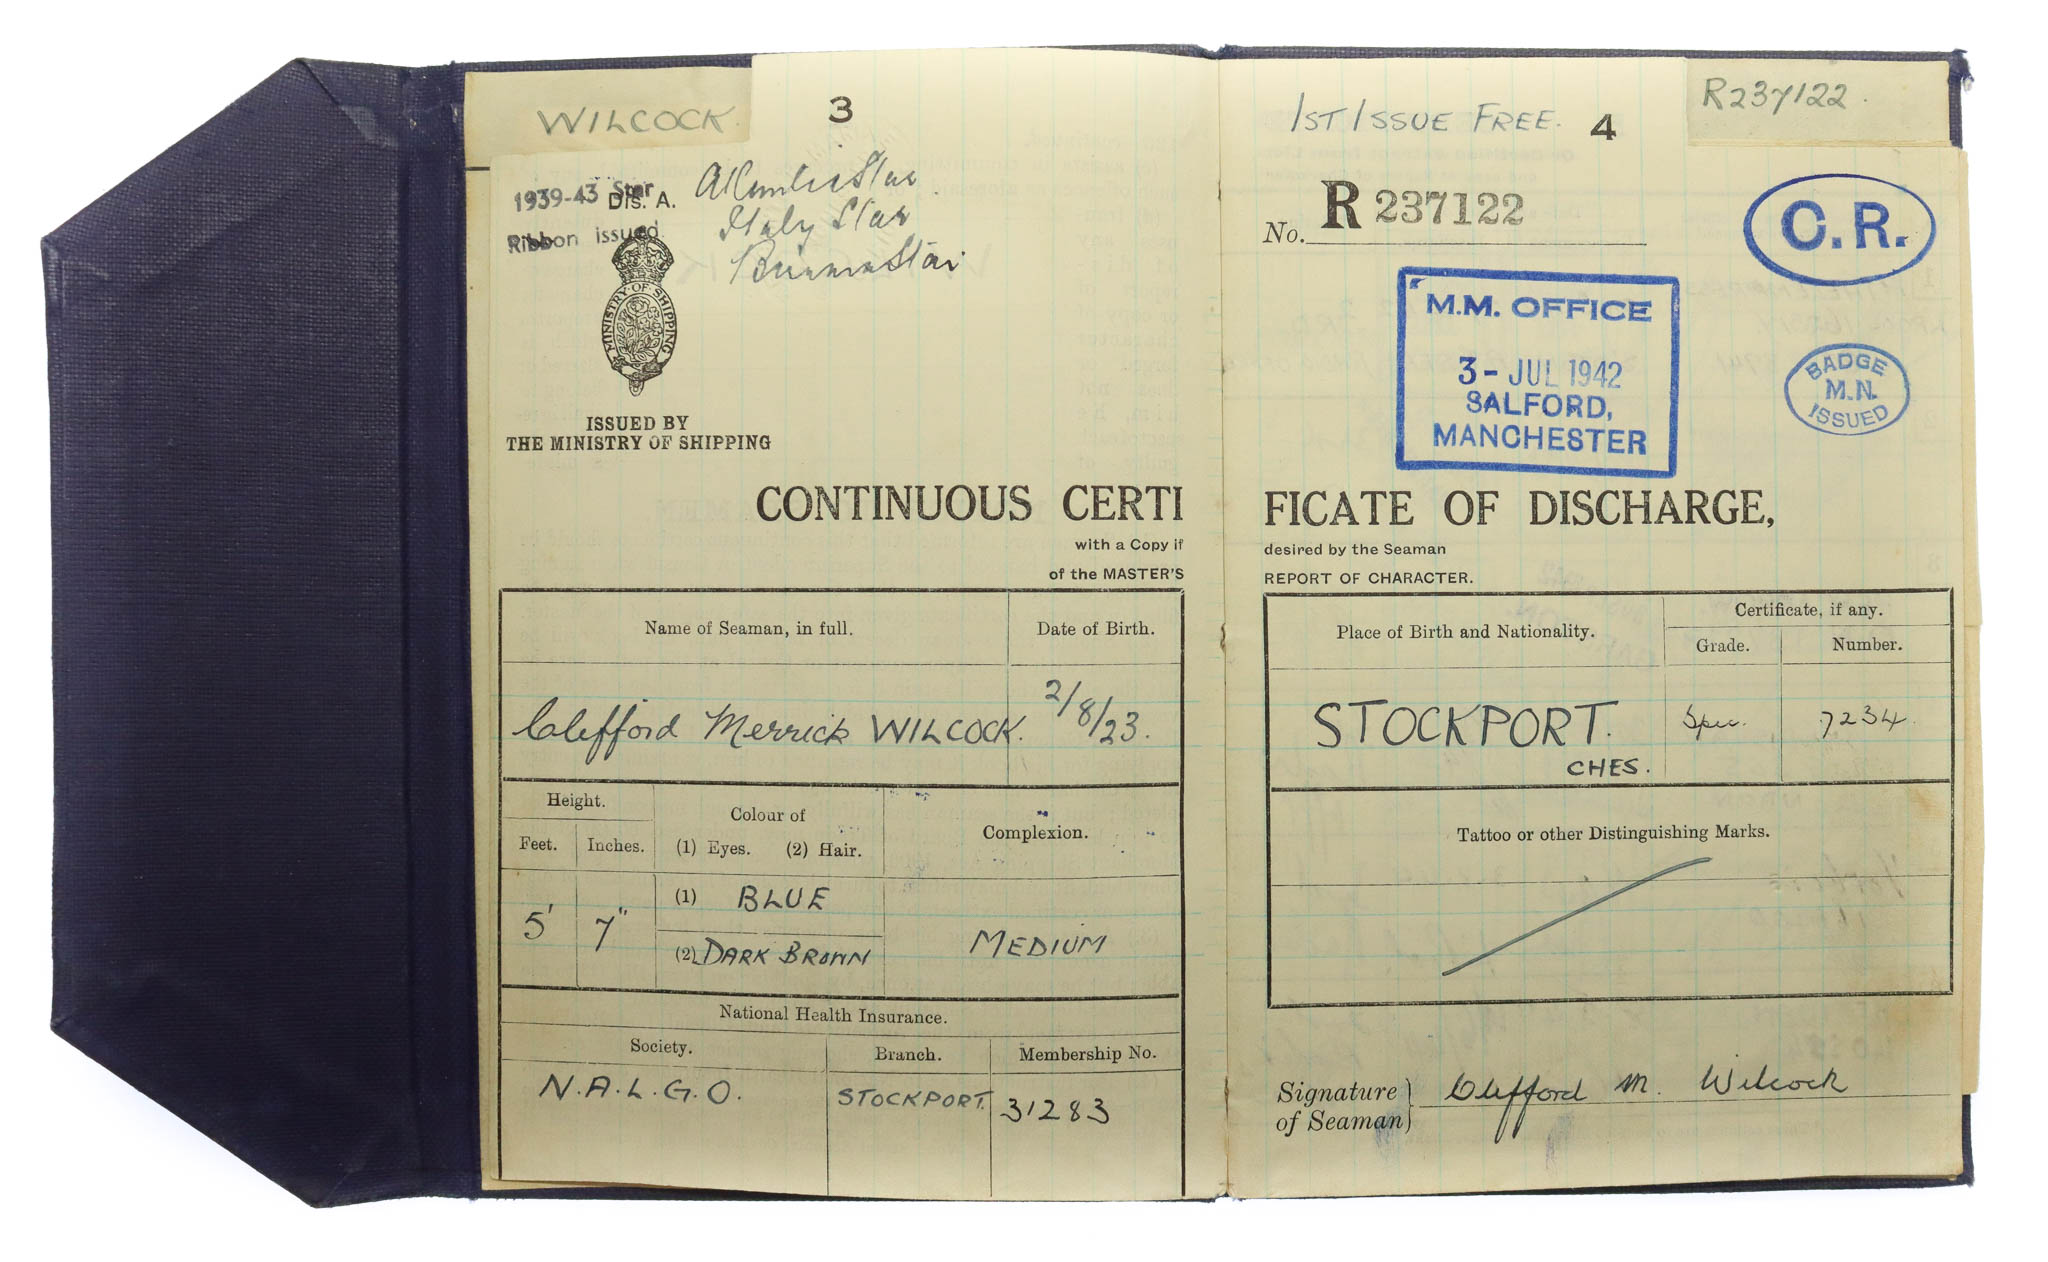 WILCOCK
3
1939-43 Star
Dis. A.
Ribbon issued
Atlantic Star
Italy Star
Burma Star
MINISTRY OF SHIPPING
ISSUED BY
THE MINISTRY OF SHIPPING
CONTINUOUS CERTI
with a Copy if
of the MASTER'S
Name of Seaman, in full.
Date of Birth.
Clifford Merrick WILCOCK.
2/8/23.
Height.
Feet.
Inches.
Colour of
(1) Eyes. (2) Hair.
Complexion.
5'
7"
(1) BLUE
(2) DARK BROWN
MEDIUM
National Health Insurance.
Society.
Branch.
Membership No.
N.A.L.G.O.
STOCKPORT.
31283
1ST ISSUE FREE.
4
R237122.
No. R 237122
C.R.
M.M. OFFICE
3 - JUL 1942
SALFORD,
MANCHESTER
BADGE
M.N.
ISSUED
FICATE OF DISCHARGE,
desired by the Seaman
REPORT OF CHARACTER.
Place of Birth and Nationality.
Certificate, if any.
Grade.
Number.
STOCKPORT.
CHES.
Spec.
7234.
Tattoo or other Distinguishing Marks.
Signature
of Seaman
Clifford M. Wilcock